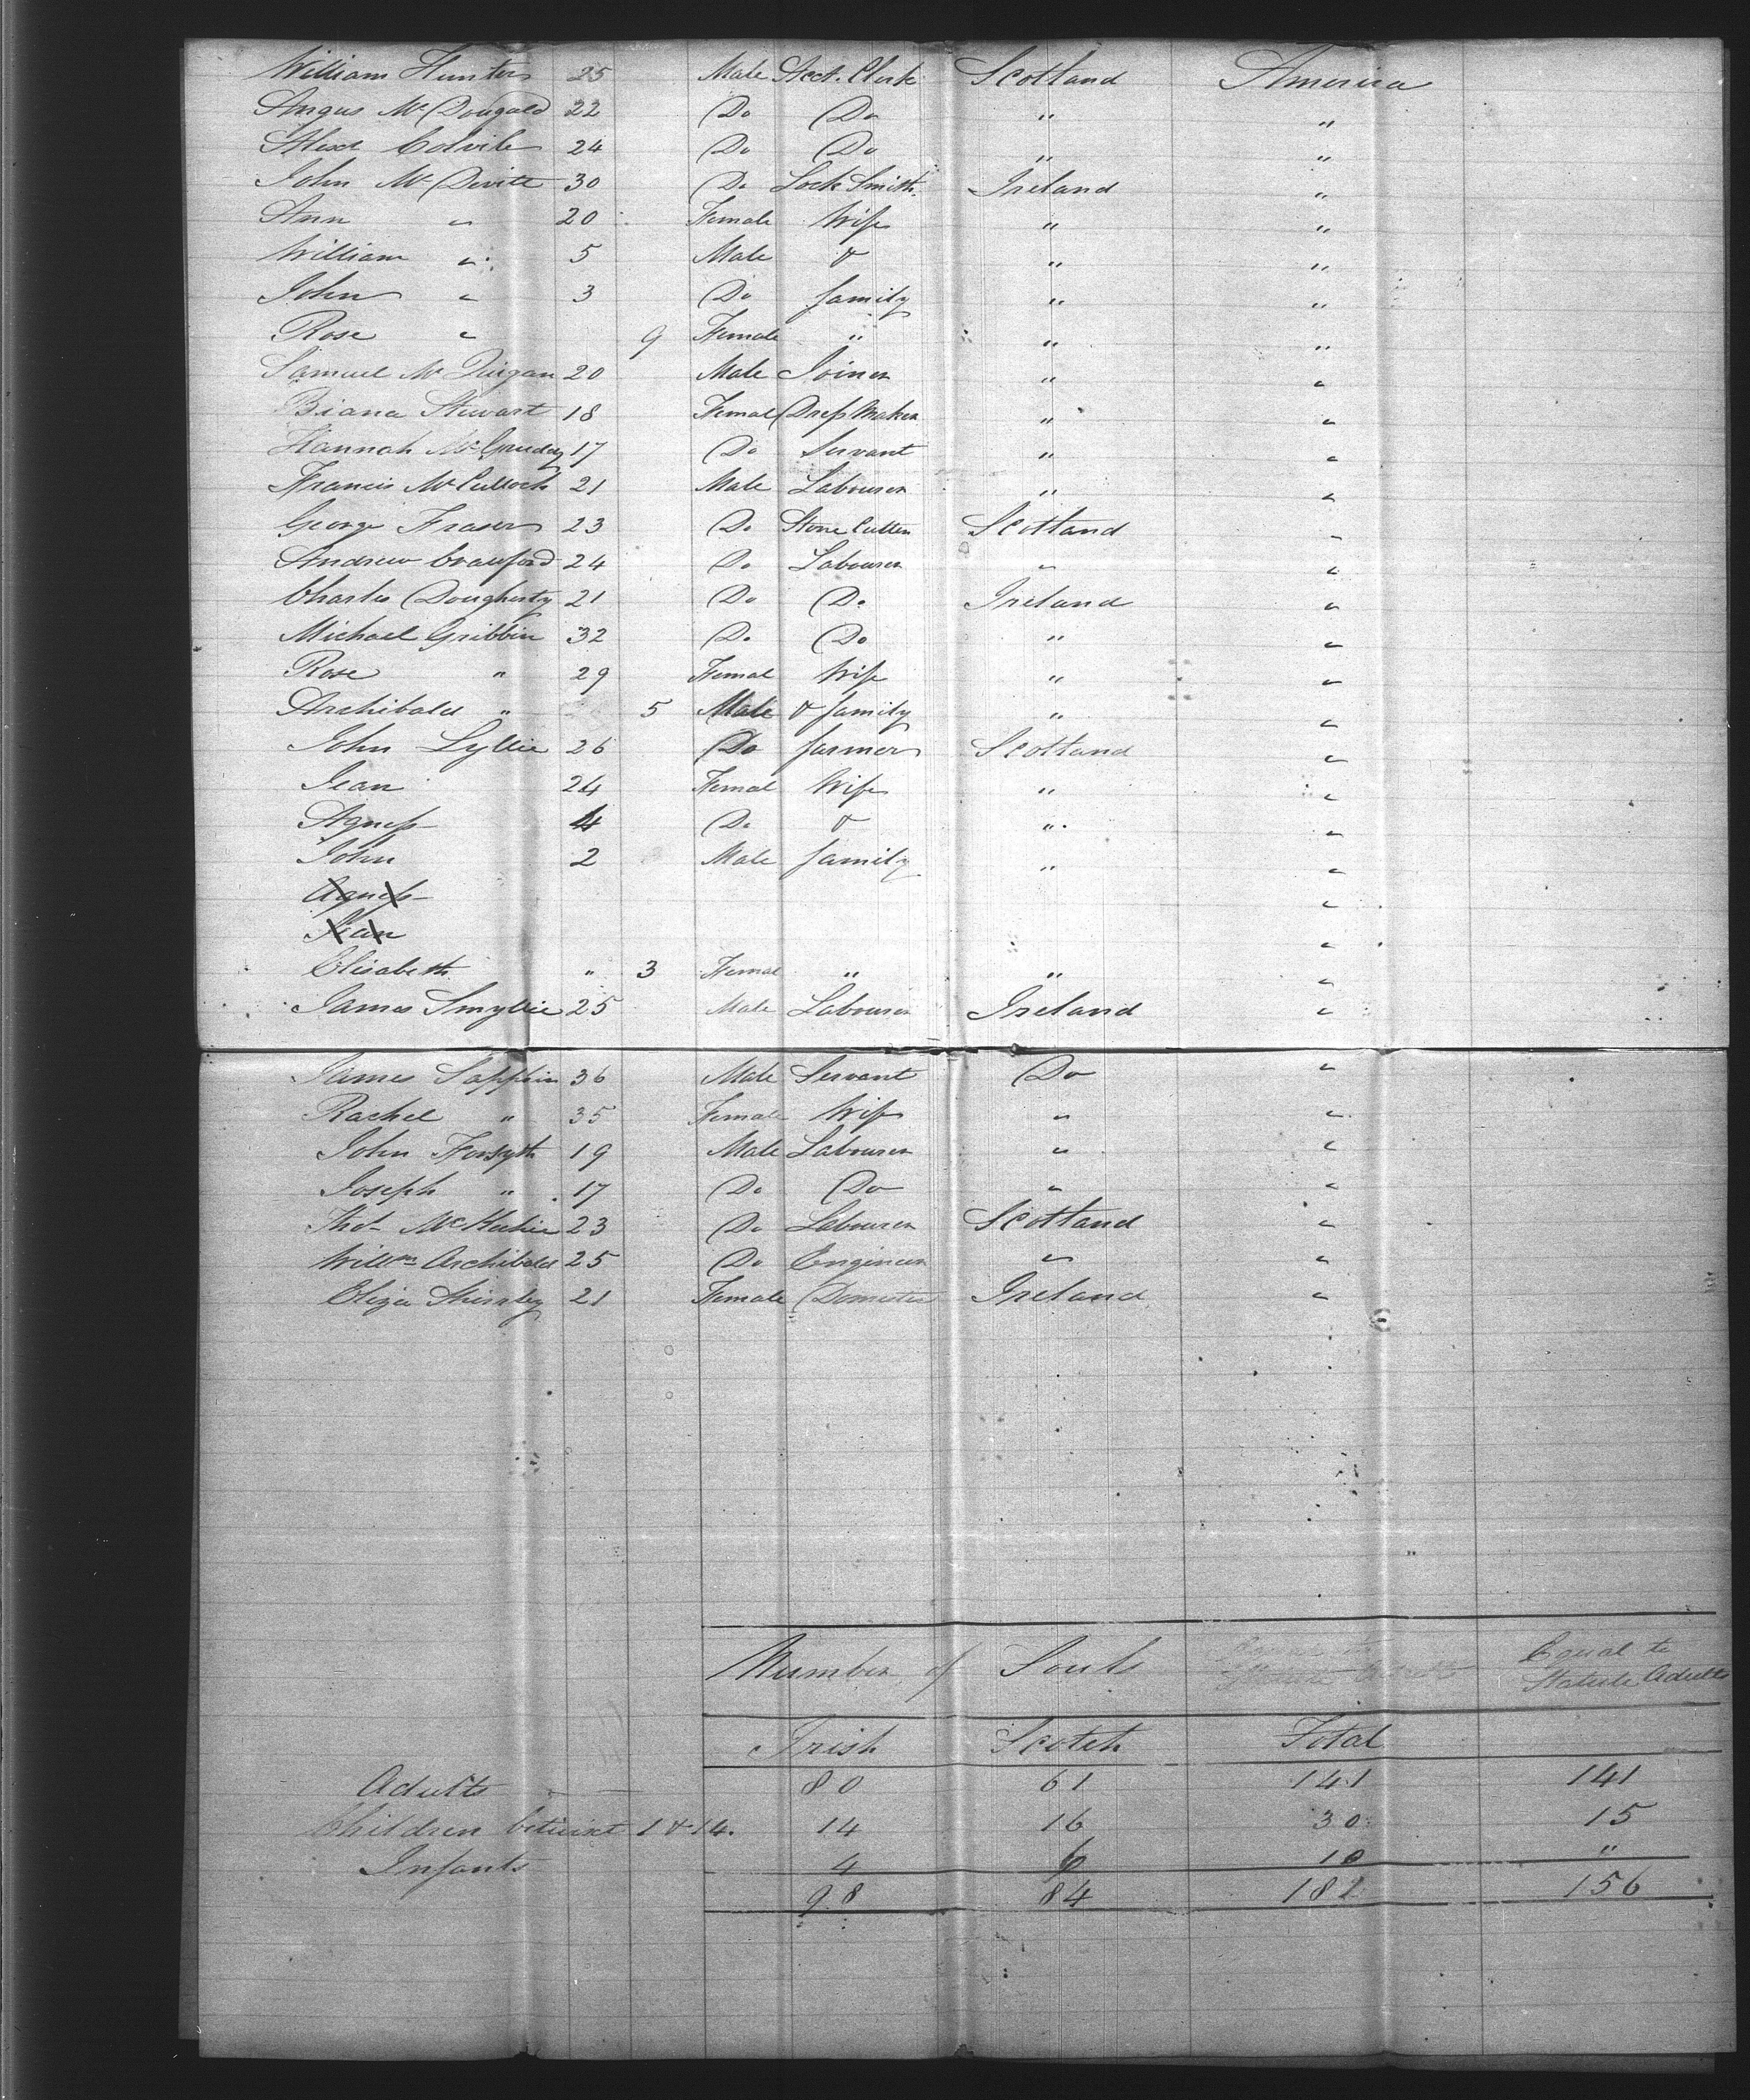 William Hunter 25 Male Acct. Clerk Scotland America
Angus McDougald 22 Do Do " "
Alexr Colvile 24 Do Do " "
John McDevitt 30 Do Lock Smith Ireland "
Ann " 20 Female Wife " "
William " 5 Male & " "
John " 3 Do family " "
Rose " 9 Female " " "
Samuel Mc 20 Male Joiner " "
Biana Stewart 18 Femal Dress Maker " "
Hannah 17 Do Servant " "
Francis McCulloch 21 Male Labourer " "
George Fraser 23 Do Stone Cutter Scotland "
Andrew Crawford 24 Do Labourer " "
Charles Dougherty 21 Do Do Ireland "
Michael Gribbin 32 Do Do " "
Rose " 29 Femal Wife " "
Archibald " 5 Male & family " "
John Lyllie 26 Do farmer Scotland "
Jean 24 Femal Wife " "
Agness 4 Do & " "
John 2 Male family " "
Agness "
Jean "
Elisabeth " 3 Femal " " "
James Smyllie 25 Male Labourer Ireland "
James Sappin 36 Male Servant Do "
Rachel " 35 Female Wife " "
John Forsyth 19 Male Labourer " "
Joseph " 17 Do Do " "
Thos 23 Do Labourer Scotland "
Willm Archibald 25 Do Engineer " "
Eliza 21 Female Domestic Ireland "
Number of Souls Equal to Statute Adults
Irish Scotch Total
Adults 80 61 141 141
Children betwixt 1 & 14. 14 16 30 15
Infants 4 10 "
98 84 182 156